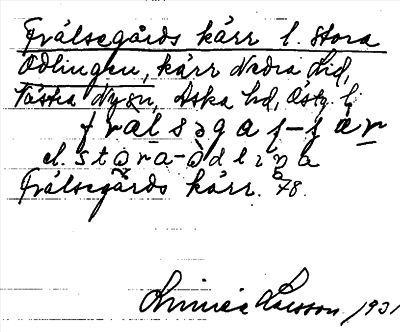 Frälsegårds kärr l. Stora
Ödlingen, kärr Nedra Lid,
Västra Ny sn, Aska hd, Östg. l.
frälsəgaṣ-ɟär
el. stora-ödliŋa
Frälsegårds kärr. 78.
Linnéa Larsson. 1931